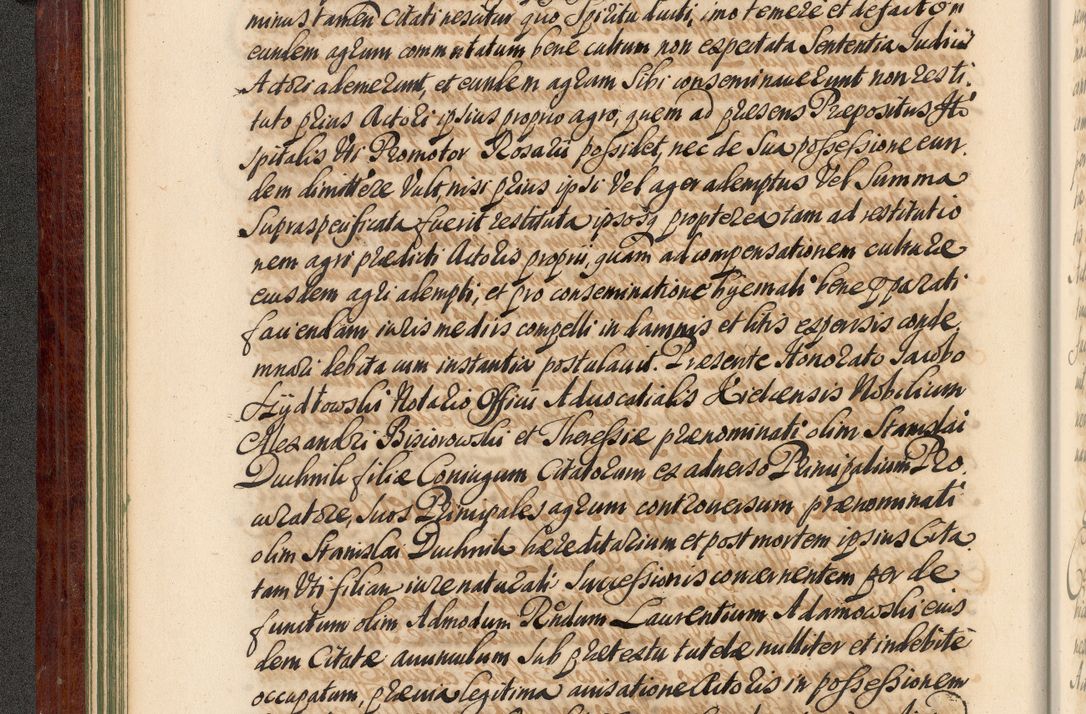 minus tamen Citati nescitur quo Spiritu ducti, imo temere et de facto
eundem agrum commutatum bene cultum non expectata Sententia Judicii
Actori ademerunt, et eundem agrum Sibi conseminaverunt non resti-
tuto prius Actori ipsius proprio agro, quem ad præsens Præpositus Ho
spitalis Uti Promotor Rosarii possidet, nec de Sua possessione eun-
dem dimittere Vult nisi prius ipsi Vel ager ademptus Vel Summa
Supraspecificata fuerit restituta ipsosq propterea tam ad restitutio
nem agri prædicti Actoris proprii, quam ad compensationem culturæ
eiusdem agri adempti, et pro conseminatione hyemali bene pparati
faciendam iuris mediis compelli in damnis et litis expensis conde,
mnari debita cum instantia postulavit. Præsente Honorato Jacobo
Żydłowski Notario Officii Advocatialis Nobilium
Alexandri Biziorowski et Theressiæ prænominati olim Stanislai
Duchnik filiæ Coniugum Citatorum ex adverso Principalium Pro-
curatore, Suos Principales agrum controversum prænominati
olim Stanislai Duchnik hæreditarium et post mortem ipsius Cita-
tam Uti filiam iure naturali Successionis concernentem per de
functum olim Admodum Rndum Laurentium Adamowski eius
dem Citatæ avunculum Sub prætextu tutelæ nulliter et indebite
occupatum, prævia legitima avisatione Actoris in possessionem